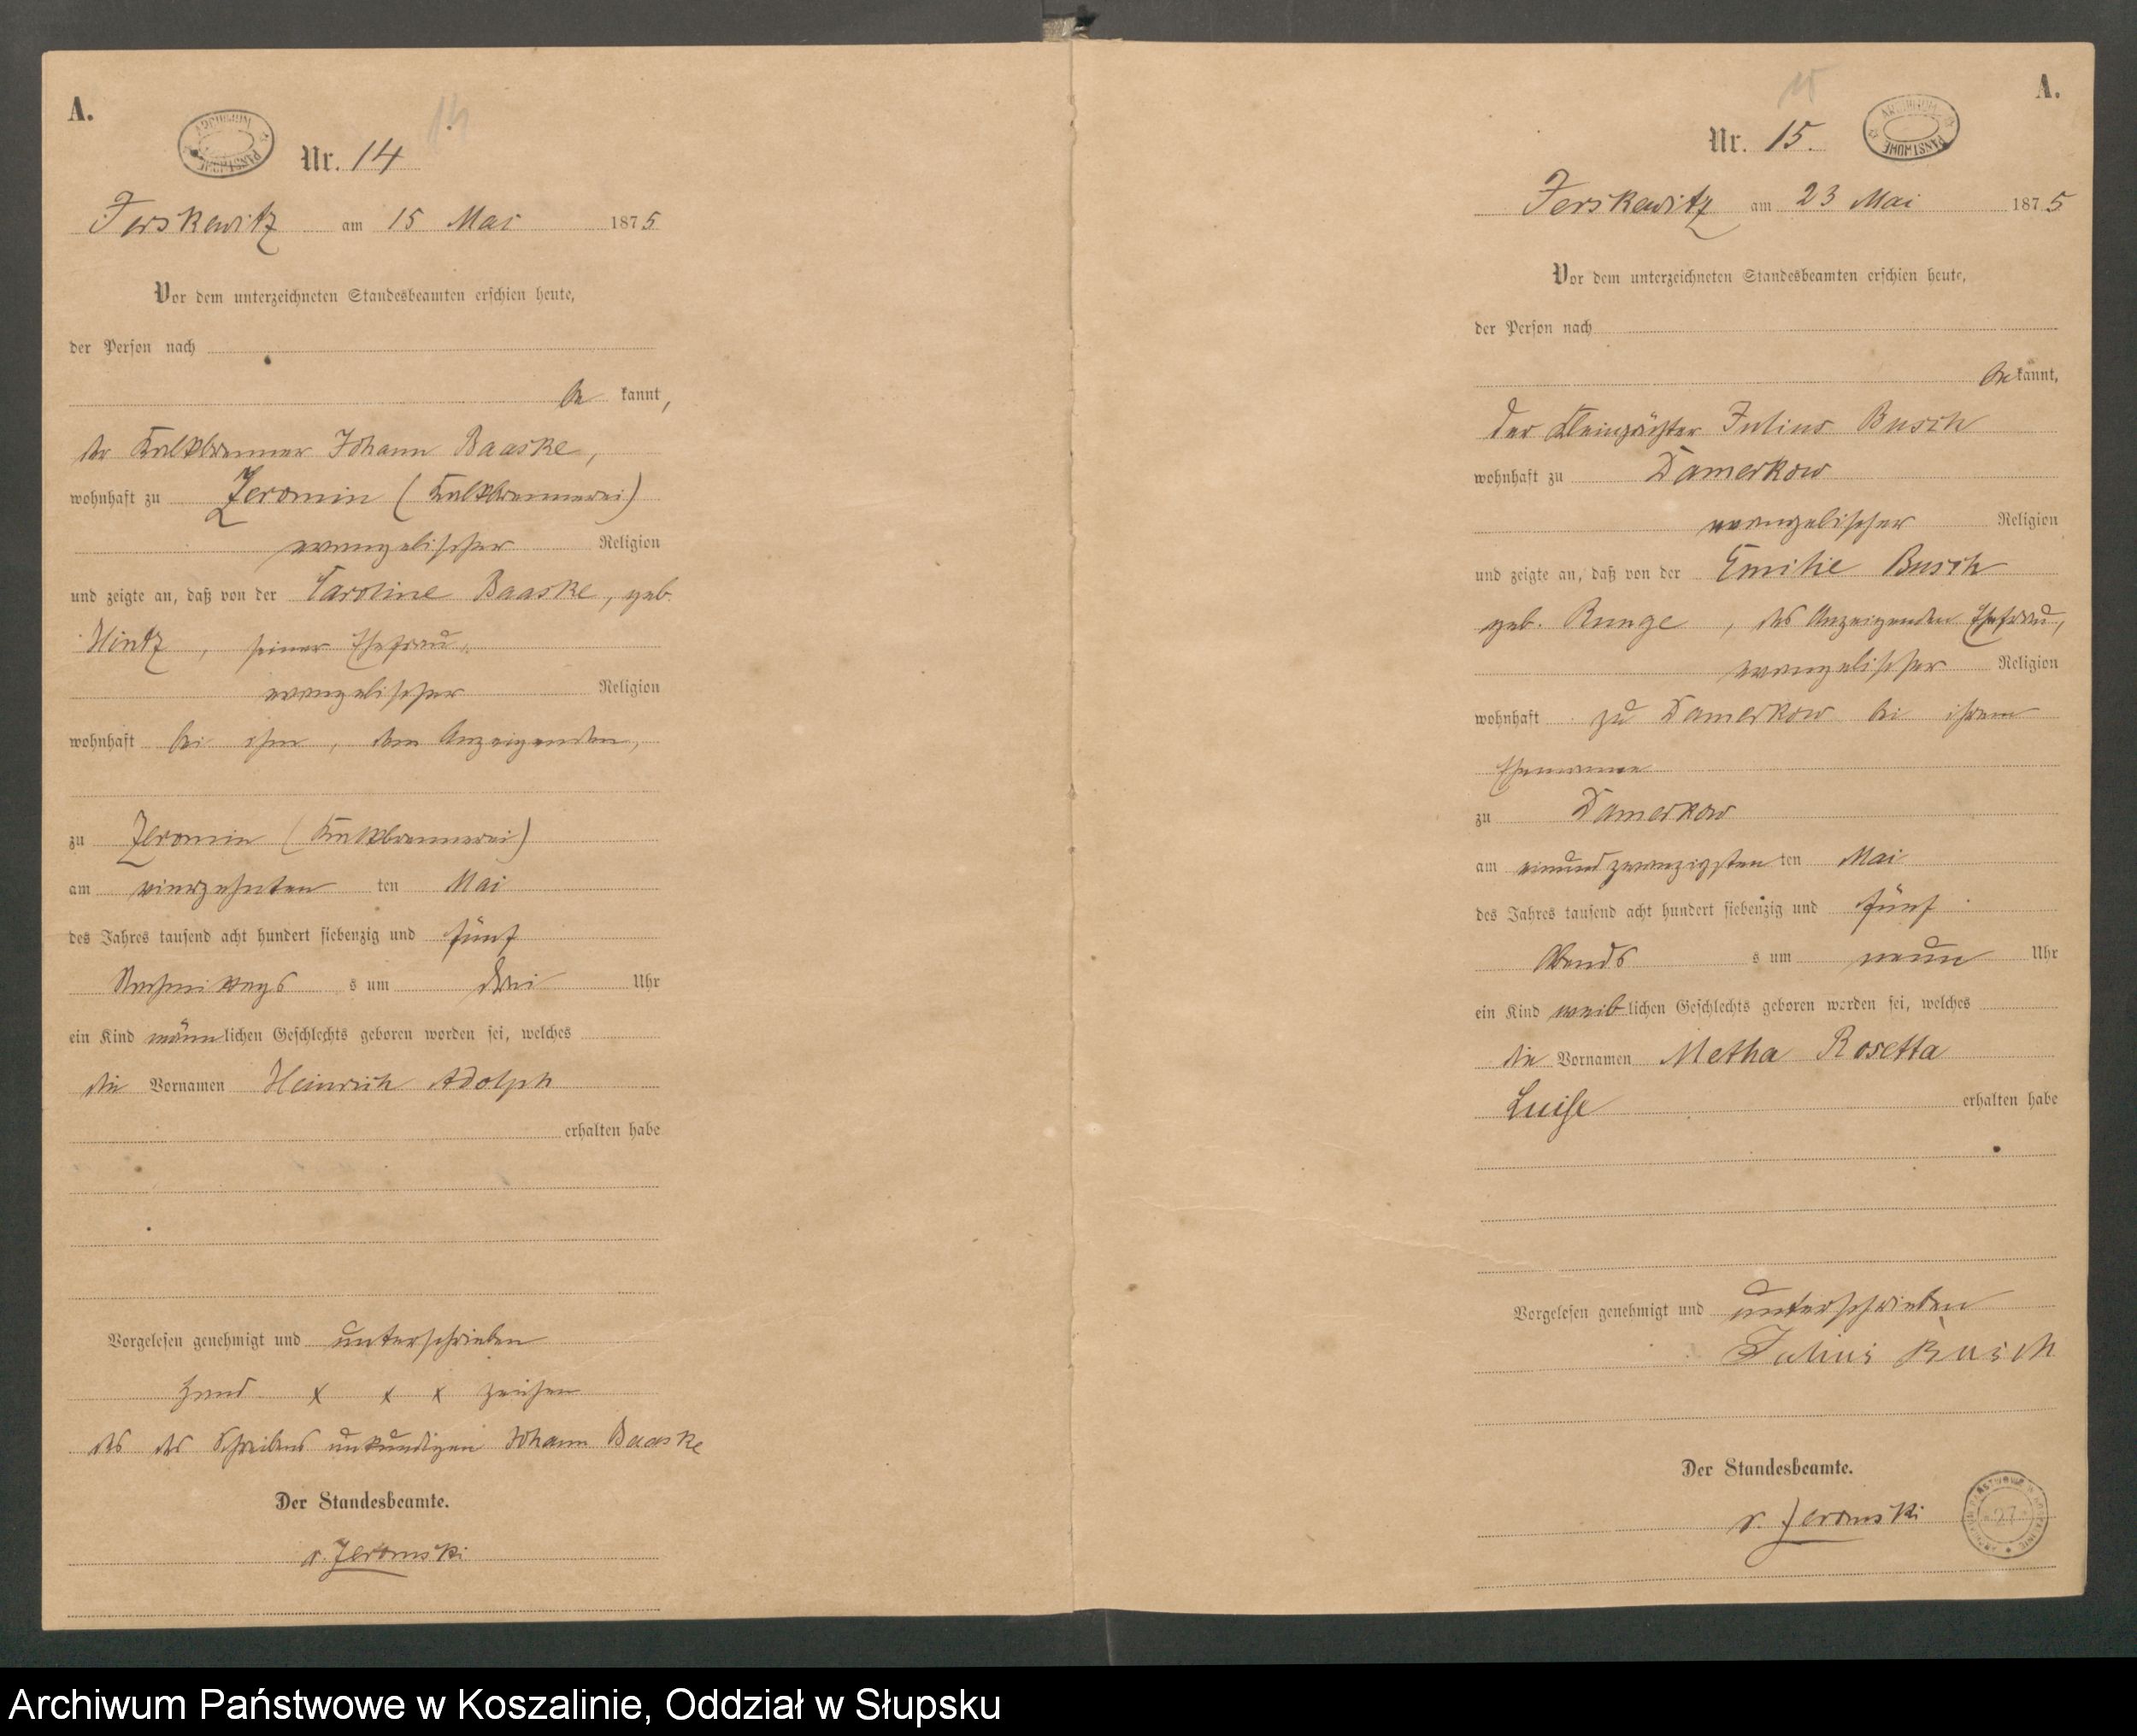 A.
14
ARCHIWUM PAŃSTWOWE
Nr. 14
Jerskewitz am 15 Mai 1875
Vor dem unterzeichneten Standesbeamten erschien heute,
der Person nach
be kannt,
der Kalkbrenner Johann Baaske,
wohnhaft zu Jeromin (Kalkbrennerei)
evangelischer Religion
und zeigte an, daß von der Caroline Baaske, geb.
Hintz, seiner Ehefrau,
evangelischer Religion
wohnhaft bei ihm, dem Anzeigenden,
zu Jeromin (Kalkbrennerei)
am vierzehnten ten Mai
des Jahres tausend acht hundert siebenzig und fünf
Nachmittags s um drei Uhr
ein Kind männlichen Geschlechts geboren worden sei, welches
die Vornamen Heinrich Adolph
erhalten habe
Vorgelesen genehmigt und unterschrieben
Hand x x x zeichen
des des Schreibens unkundigen Johann Baaske
Der Standesbeamte.
v. Jeromski
A.
15
Nr. 15.
ARCHIWUM PAŃSTWOWE
Jerskewitz am 23 Mai 1875
Vor dem unterzeichneten Standesbeamten erschien heute,
der Person nach
be kannt,
der Kleinpächter Julius Busch
wohnhaft zu Damerkow
evangelischer Religion
und zeigte an, daß von der Emilie Busch
geb. Runge, des Anzeigenden Ehefrau,
evangelischer Religion
wohnhaft zu Damerkow bei ihrem
Ehemanne
zu Damerkow
am einundzwanzigsten ten Mai
des Jahres tausend acht hundert siebenzig und fünf
Abends s um neun Uhr
ein Kind weiblichen Geschlechts geboren worden sei, welches
die Vornamen Metha Rosetta
Luise erhalten habe
Vorgelesen genehmigt und unterschrieben
Julius Busch
Der Standesbeamte.
v. Jeromski
27
Archiwum Państwowe w Koszalinie, Oddział w Słupsku